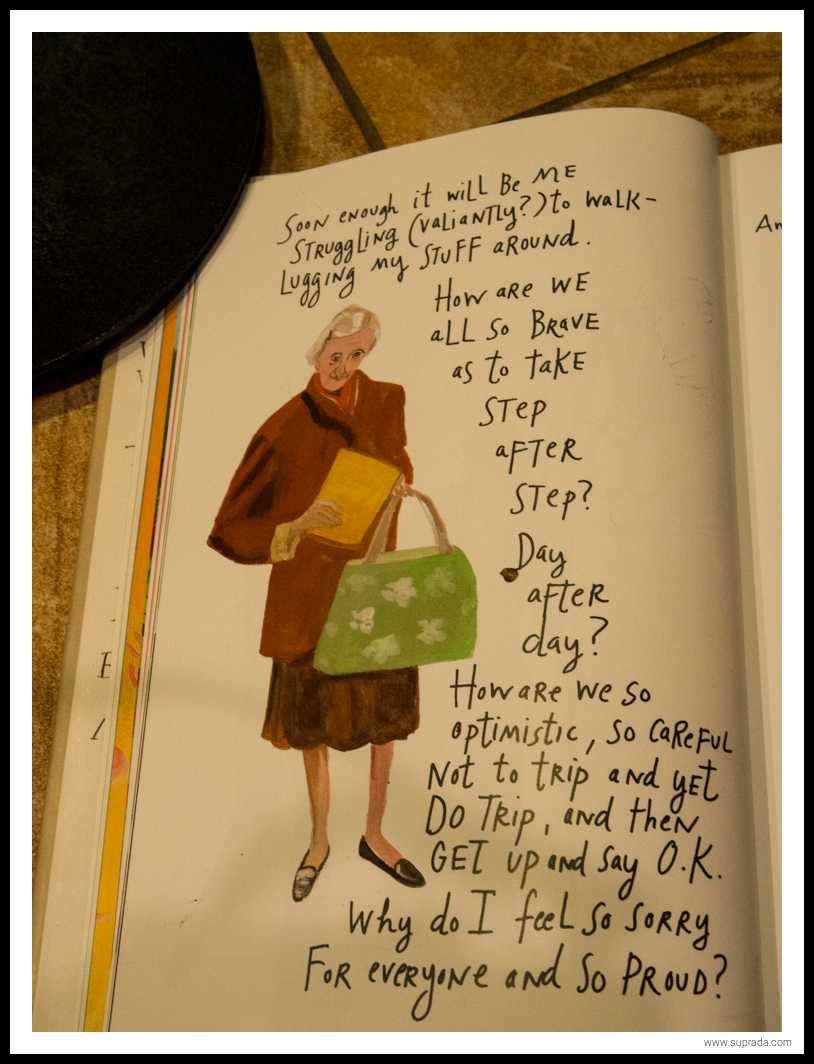 Soon enough it will Be ME
STRuggLing (valiantly?) to walk-
Lugging my STUFF aROUND.
How are WE
aLL so BRAVE
as to take
STEP
aFTER
STEP?
Day
aFTER
day?
How aRe we so
optimistic, so caReFUL
Not to trip and yet
DO TRip, and then
GET up and say O.K.
Why do I feel so sorry
FOR everyone and so PROUD?
An
E
www.suprada.com